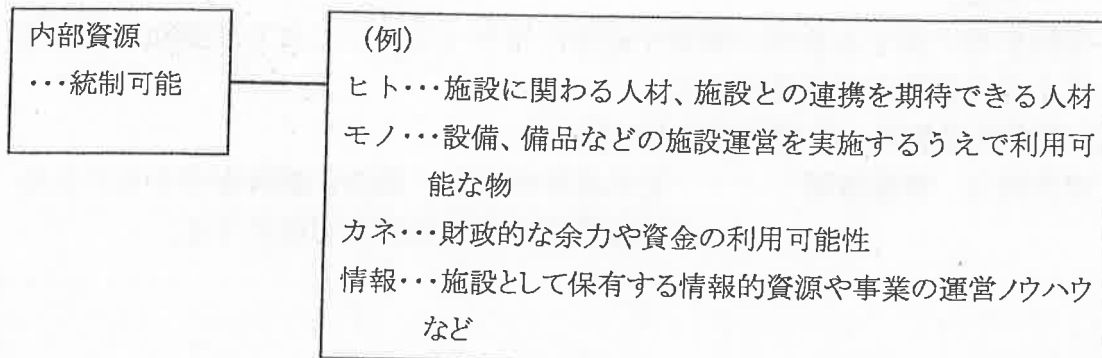 内部資源
・・・統制可能
(例)
ヒト・・・施設に関わる人材、施設との連携を期待できる人材
モノ・・・設備、備品などの施設運営を実施するうえで利用可
能な物
カネ・・・財政的な余力や資金の利用可能性
情報・・・施設として保有する情報的資源や事業の運営ノウハウ
など